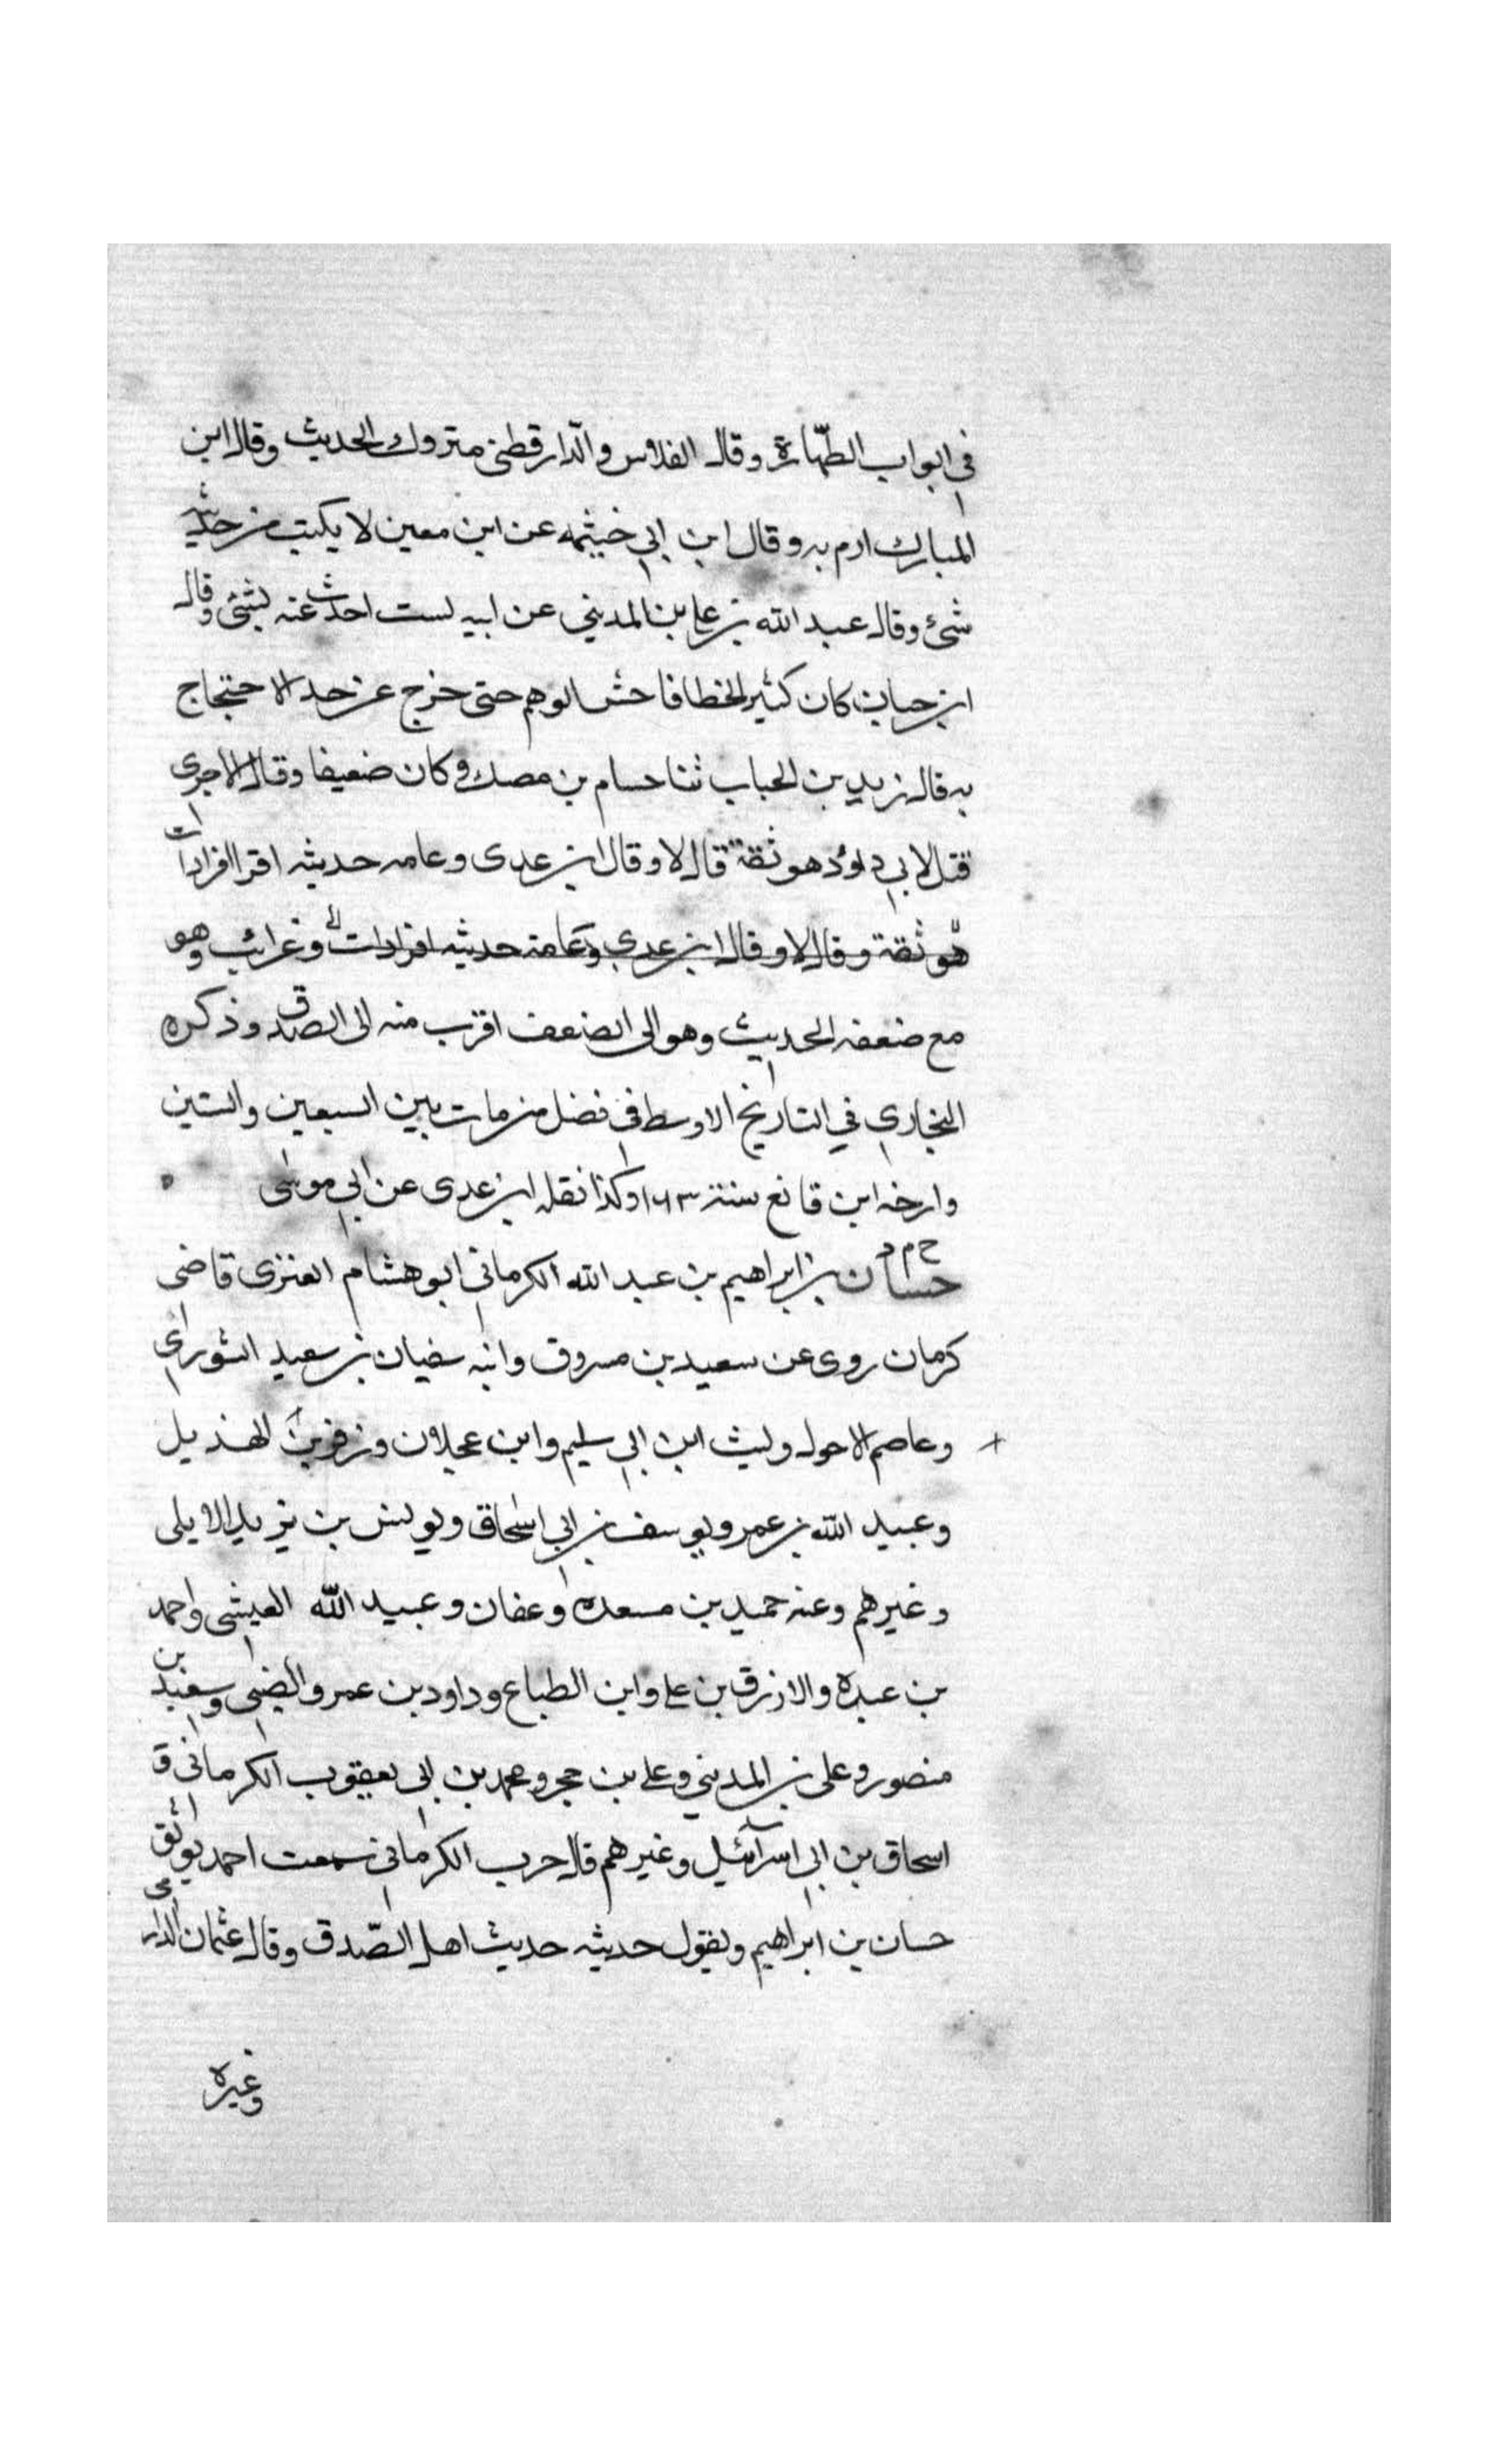 في ابواب الطهارة وقال الفلاس والدارقطني متروك الحديث وقال ابن
المبارك ارم به وقال ابن ابي خيثمه عن ابن معين لا يكتب من حديثه
شئ وقال عبد الله بن علي بن المديني عن ابيه لست احدث عنه بشئ وقال
ابن حبان كان كثير الخطا فاحش الوهم حتى خرج عن حد الاحتجاج
به قال زيد بن الحباب ثنا حسام بن مصك وكان ضعيفا وقال الاجري
قتل لابي داود هو ثقة قال لا وقال ابن عدى وعامه حديثه افرادات
هو ثقة وقال لا وقال ابن عدي وعامة حديثه افرادات وغرائب وهو
مع ضعفه الحديث وهو الى الضعف اقرب منه الى الصدق وذكره
البخاري في التاريخ الاوسط في فضل من مات بين السبعين والستين
وارخه ابن قانع سنة ١٦٣ وكذا نقله ابن عدى عن ابي موسى
خ م د
حسان بن ابراهيم بن عبد الله الكرماني ابو هشام العنزى قاضى
كرمان روى عن سعيد بن مسروق وابنه سفيان بن سعيد الثوراي
وعاصم الاحول وليث ابن ابي سليم وابن عجلان وزفر بن الهذيل
وعبيد الله بن عمر ويوسف بن ابي اسحاق ويونس بن يزيد الايلى
وغيرهم وعنه حميد بن مسعده وعفان وعبيد الله العيشى واحمد
بن عبده والازرق بن علي وابن الطباع وداود بن عمرو الضبي وسعيد بن
منصور وعلى بن المديني وعلي بن حجر ومحمد بن ابي يعقوب الكرماني و
اسحاق بن ابي اسرآئيل وغيرهم قال حرب الكرماني سمعت احمد يوثق
حسان بن ابراهيم ويقول حديثه حديث اهل الصدق وقال عثمان الدارمي
وغيره